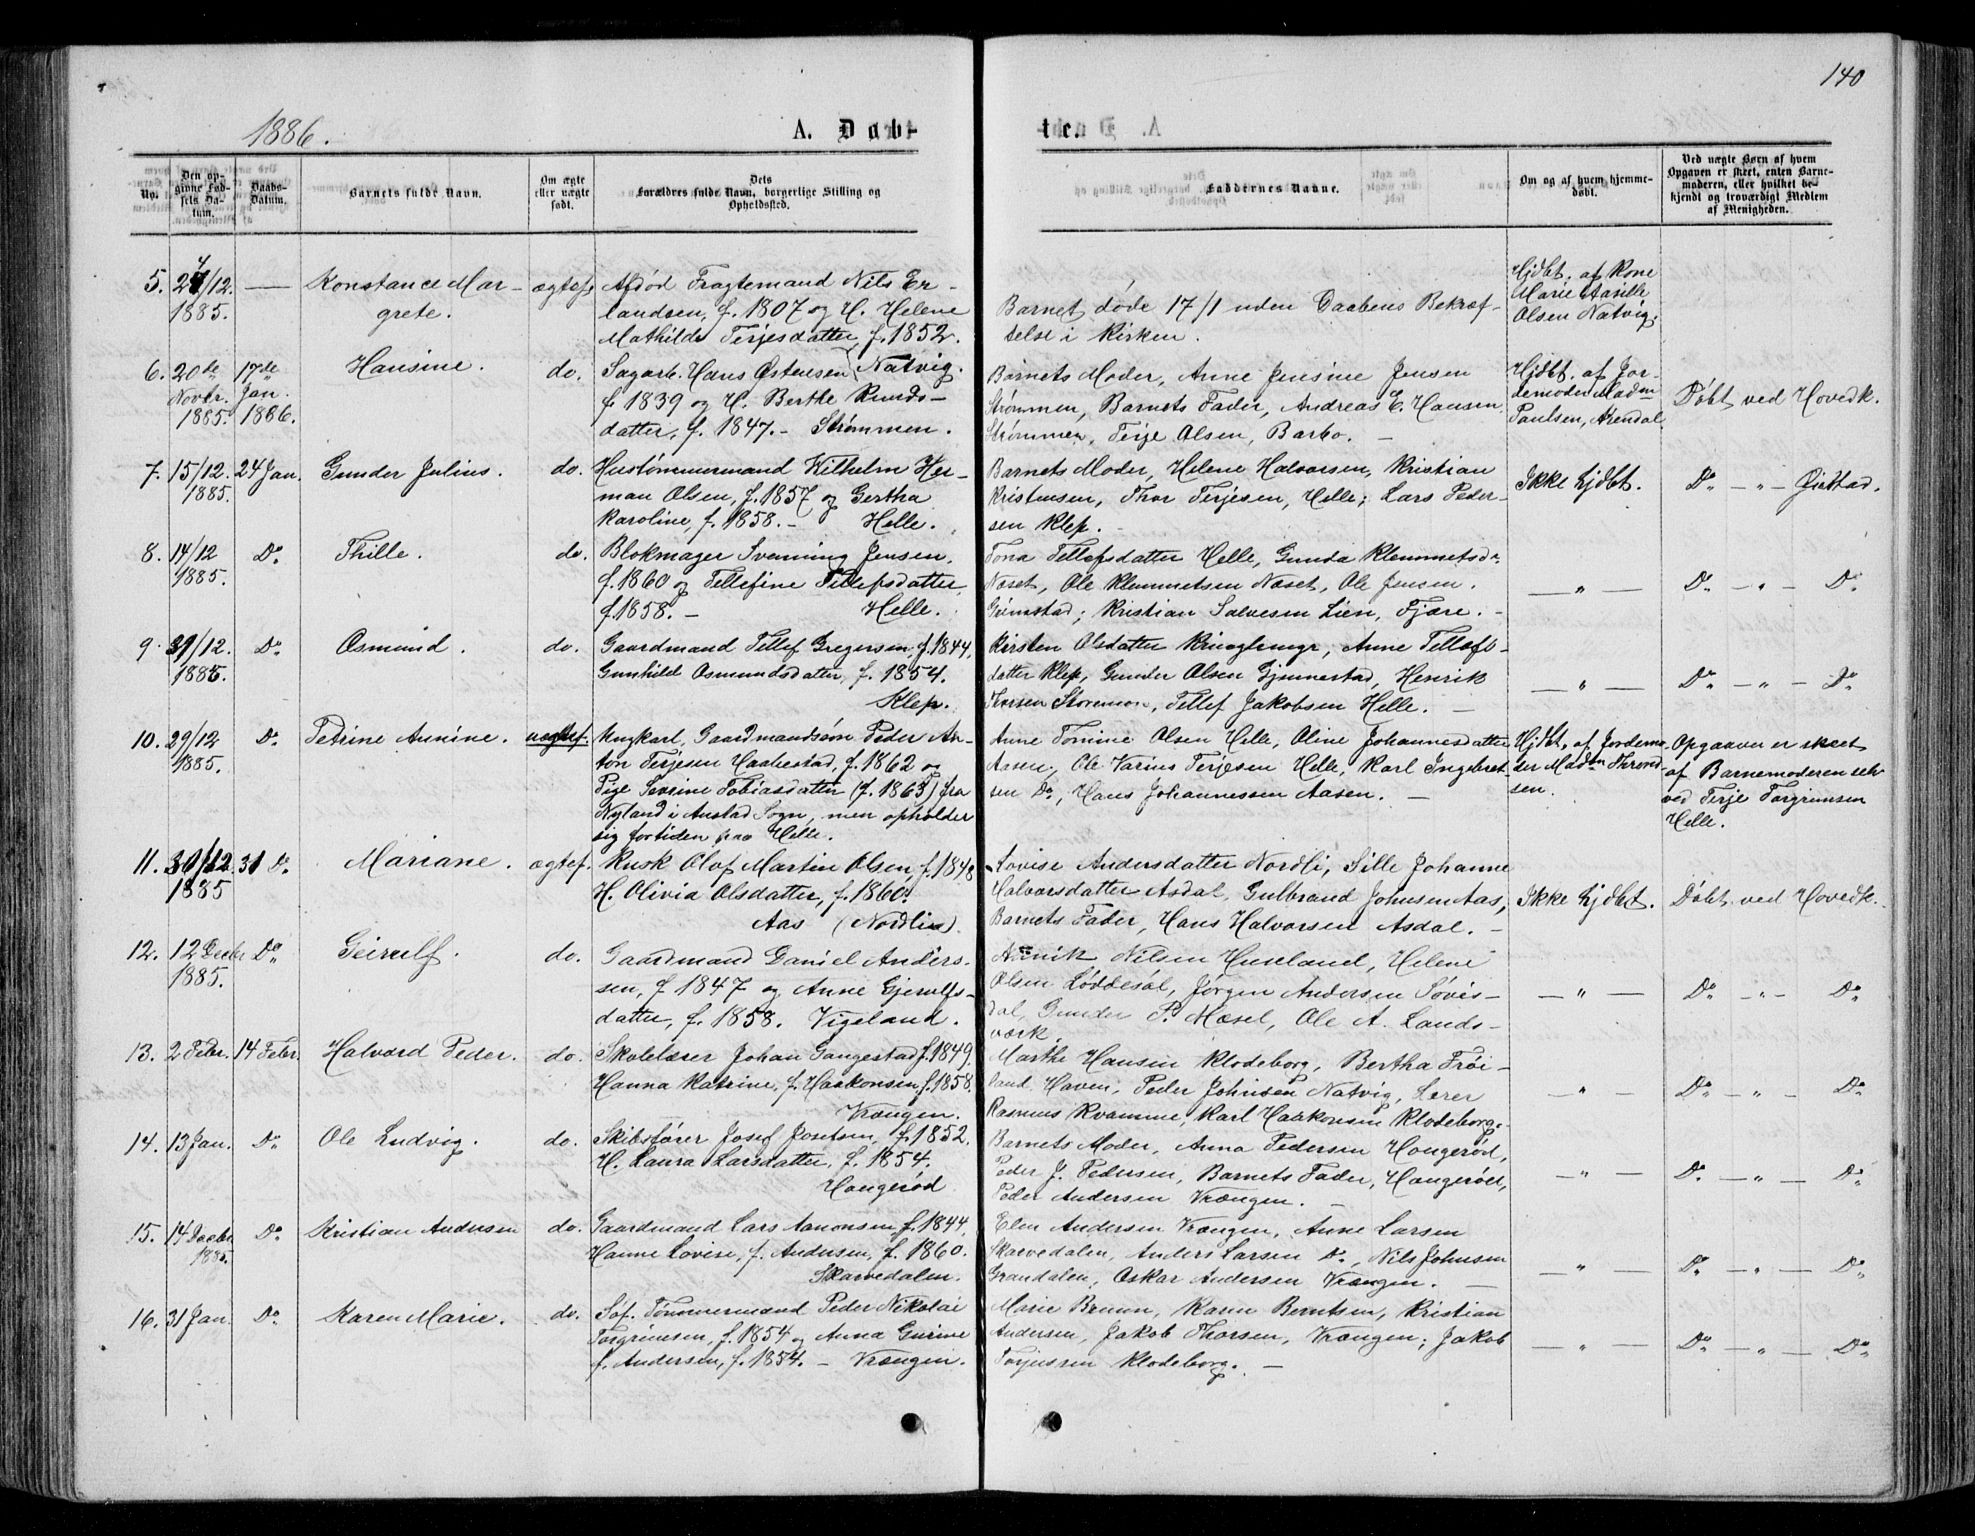 140
1886.
A. Døbte.
No.
Den opgivne Fødsels Datum.
Daabs-Datum.
Barnets fulde Navn.
Om ægte eller uægte født.
Dets Forældres fulde Navn, borgerlige Stilling og Opholdssted.
Faddernes Navne.
Om og af hvem hjemmedøbt.
Ved uægte Børn af hvem Opgaven er skeet, enten Barnemoderen, eller hvilket bekjendt og troværdigt Medlem af Menigheden.
5. 24/12. — Konstance Mar- ægtef.
1885. grete.
Afdød Fragtemand Nils Er-
landsen, f. 1807 og H. Helene
Mathilde Terjesdatter, f. 1852.
Natvig.
Barnet døde 17/1 uden Daabens Bekræf-
telse i Kirken.
Hjdbt. af Kone
Marie Aasille
Olsen Natvig.
6. 20de 17de Hansine. do.
Novbr. Jan.
1885. 1886.
Sagarb. Hans Østensen
f. 1839 og H. Berthe Knuds-
datter, f. 1847. - Strømmen.
Barnets Moder, Anne Jensine Jensen
Strømmen, Barnets Fader, Andreas C. Hansen,
Strømmen, Terje Olsen, Barbo. —
Hjdbt. af Jor-
demoder Madm
Paulsen, Arendal.
Døbt ved Hovedk.
7. 15/12. 24 Jan. Gunder Julius. do.
1885.
Hustømmermand Vilhelm Her-
man Olsen, f. 1857 og Gertha
Karoline, f. 1858. - Helle.
Barnets Moder, Helene Halvorsen, Kristian
Kristensen, Thor Terjesen, Helle; Lars Peder-
sen Klep. -
Ikke hjdbt.
Do - " - Øiestad.
8. 14/12 Do Thille. do.
1885.
Blokmager Svenning Jensen,
f. 1860 og Tellefine Tellefsdatter,
f. 1858. - Helle.
Tona Tellefsdatter Helle, Gunda Klemmetsdr
Næset, Ole Klemmetsen Næset, Ole Jensen.
Grimstad; Kristian Salvesen Lien, Fjære. -
— " —
Do - " - Do
9. 31/12. Do Osmund. do.
1885.
Gaardmand Tellef Gregersen, f. 1844,
Gunhild Osmundsdatter, f. 1854.
Klep.
Kirsten Olsdatter, Anne Tellefs-
datter Klep, Gunder Olsen Gjennestad, Henrik
Thorsen, Tellef Jakobsen Helle. —
— " —
Do - " - Do
10. 29/12 Do Petrine Annine. uægtef.
1885.
Ungkarl, Gaardmandssøn Peder An-
ton Terjesen Haabestad, f. 1862 og
Pige Severine Tobiasdatter (f. 1863) fra
Nyland i Austad Sogn, men opholder
sig fortiden paa Helle.
Anne Tomine Olsen Helle, Oline Johannesdatter
Aasen, Ole Varius Terjesen Helle, Karl Ingebret-
sen Do, Hans Johannessen Aasen. —
Hjdbt. af Jordemo-
der Madm Thrond-
sen.
Opgaven er skeet
af Barnemoderen selv
ved Terje Torgrimsen
Helle.
11. 30/12. 31 Do Mariane. ægtef.
1885
Kusk Olaf Martin Olsen, f. 1848
H. Olivia Olsdatter, f. 1860.
Aas (Nordlien).
Lovise Andersdatter Nordli, Sille Johanne
Halvorsdatter Asdal, Gulbrand Johnsen Aas,
Barnets Fader, Hans Halvorsen Asdal. -
Ikke hjdbt.
Døbt ved Hovedk.
12. 12 Decbr Do Geirulf. do.
1885.
Gaardmand Daniel Anders-
sen, f. 1847 og Anne Gjerulfs-
datter, f. 1858. Vigeland.
Nilsen Huseland, Helene
Olsen Løddesøl, Jørgen Andersen Løvis-
dal, Gunder P. Mæsel, Ole A. Lands-
værk.
— " —
Do - " - Do
13. 2 Febr. 14 Febr. Halvard Peder. do.
Skolelærer Johan Gangestad, f. 1849,
Hanna Katrine, f. Haakonsen, f. 1858.
Vrængen.
Marthe Hansen Klodeborg, Bertha Frøi-
land, Haven, Peder Johnsen Natvig, Lærer
Rasmus Kvamme, Karl Haakonsen Klodeborg.
— " —
Do - " - Do
14. 13 Jan. Do Ole Ludvig. do.
Skibsfører Josef Josefsen, f. 1852.
H. Laura Larsdatter, f. 1854.
Hangerød
Barnets Moder, Anna Pedersen Hangerød,
Peder J. Pedersen, Barnets Fader, Hangerød,
Peder Andersen Vrængen. —
— " —
Do - " - Do
15. 14 Decbr Do Kristian Andersen do.
1885.
Gaardmand Lars Aanonsen, f. 1844,
Hanne Lovise, f. Andersen, f. 1860.
Skarvedalen.
Elen Andersen Vrængen, Anne Larsen
Skarvedalen, Anders Larsen Do, Nils Johnsen
Grandalen, Oskar Andersen Vrængen. —
— " —
Do - " - Do
16. 31 Jan. Do Karen Marie. do.
Søf. Tømmermand Peder Nikolai
Torgrimsen, f. 1854 og Anna Gurine
f. Andersen, f. 1854. - Vrængen.
Marie Bruun, Karen Berntsen, Kristian
Andersen, Jakob Thorsen, Vrængen; Jakob
Torjussen Klodeborg. —
— " —
Do - " - Do